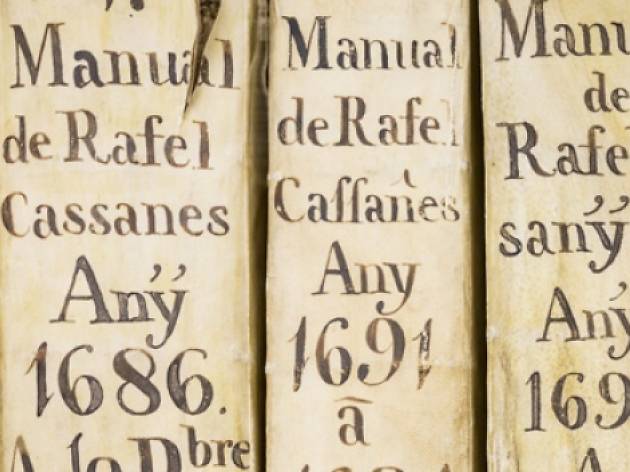 Manual
de Rafel
Cassanes
Anÿ
1686.
A 10 Dbre
Manual
de Rafel
Caſſañes
Any
1691
ā
Manu
de
Rafe
sanÿ
Aný
169
A